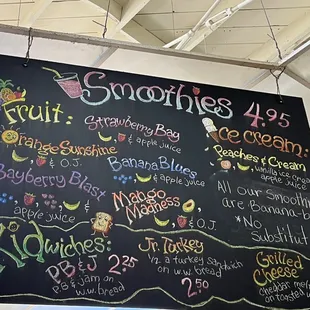 Smoothies 4.95
Fruit:
Orange Sunshine
& O.J.
Bayberry Blast
apple juice
Strawberry Bay
& apple juice
Banana Blues
& apple juice
Mango
Madness
& O.J.
Ice cream:
Peaches & Cream
vanilla ice
apple juice
All our Smoothi
are Banana-b
*No
Substitut
Kidwiches:
PB & J 2.25
P.B & jam on
w.w. bread
Jr. Turkey
1/2 a turkey sandwich
on w.w. bread
2.50
Grilled
Cheese
cheddar me
on w.w.